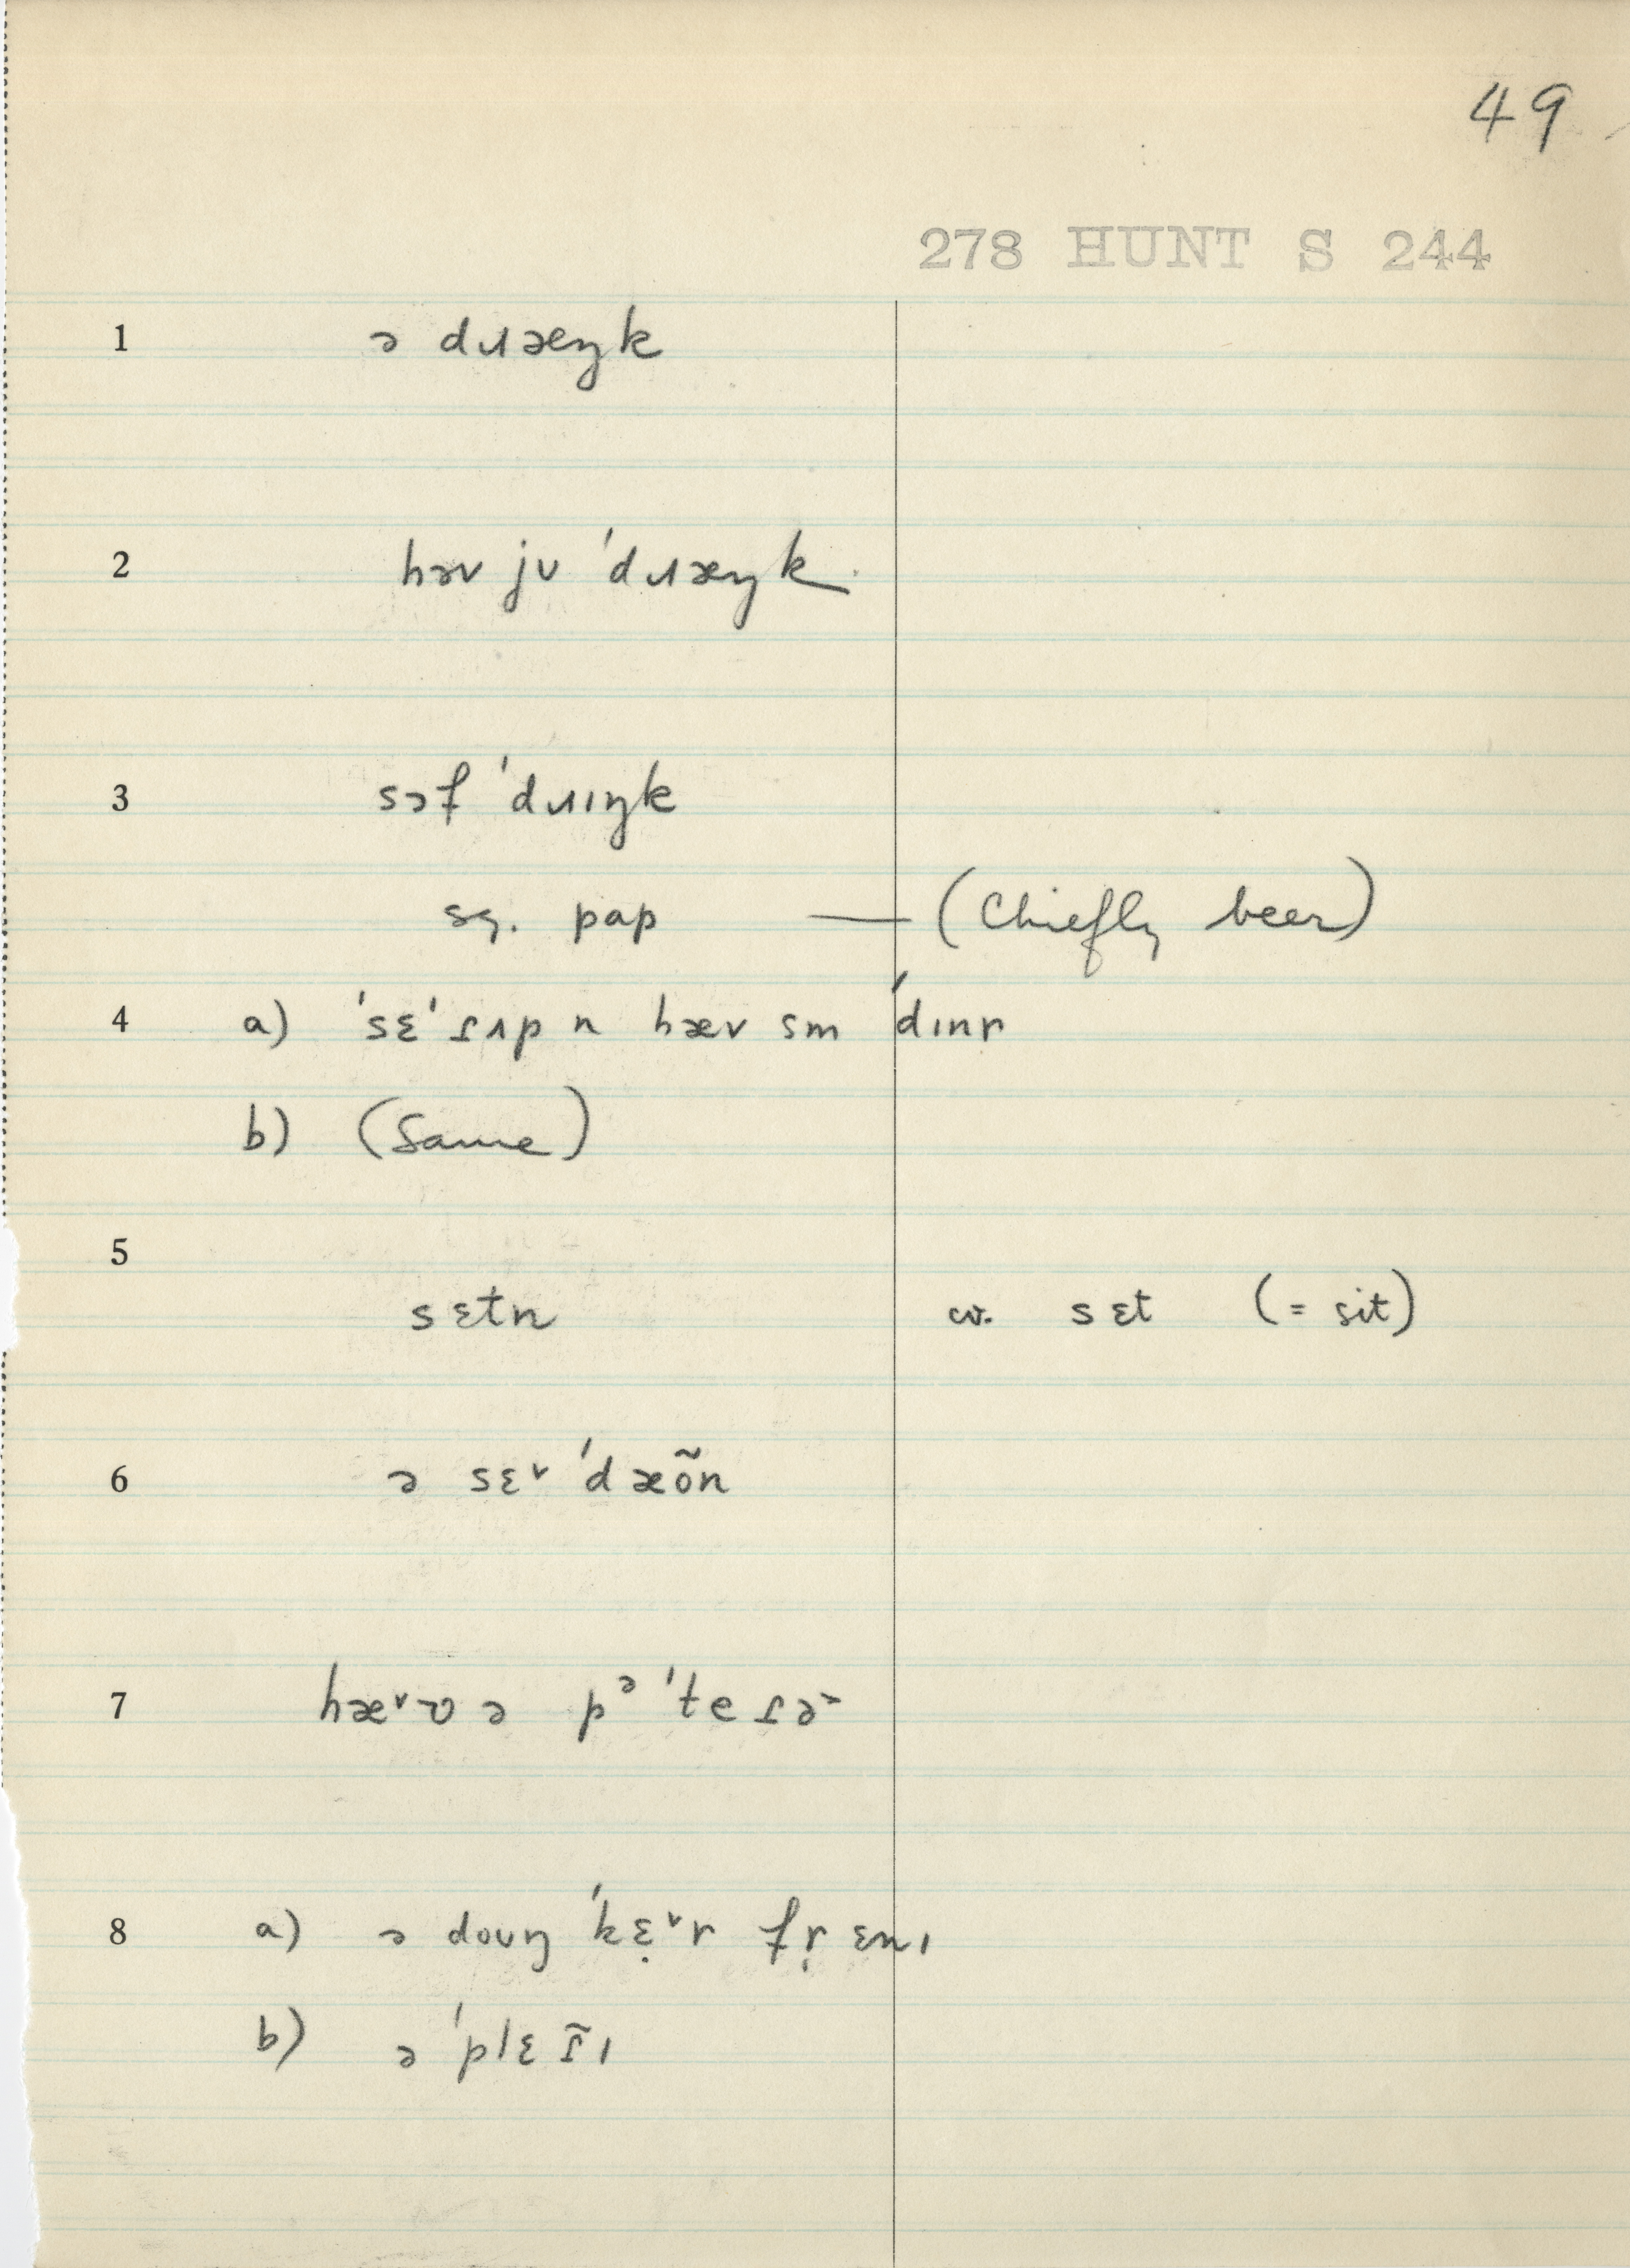 49
278 HUNT S 244
1 ə dɹæŋk
2 həv jʊ ˈdɹæŋk
3 sɔf ˈdɹɪŋk
sg. pap — (Chiefly beer)
4 a) ˈsɛˈɾʌp n hæv sm ˈdɪnr
b) (Same)
5
sɛtn w. sɛt (= sit)
6 ə sɛ˅ ˈdæõn
7 hæ˅ʊ ə pᵊˈteɾə˞
8 a) ə doʊŋ ˈkɛ̣˅r fṛ ɛnɪ
b) ə ˈplɛɾ̃ɪ